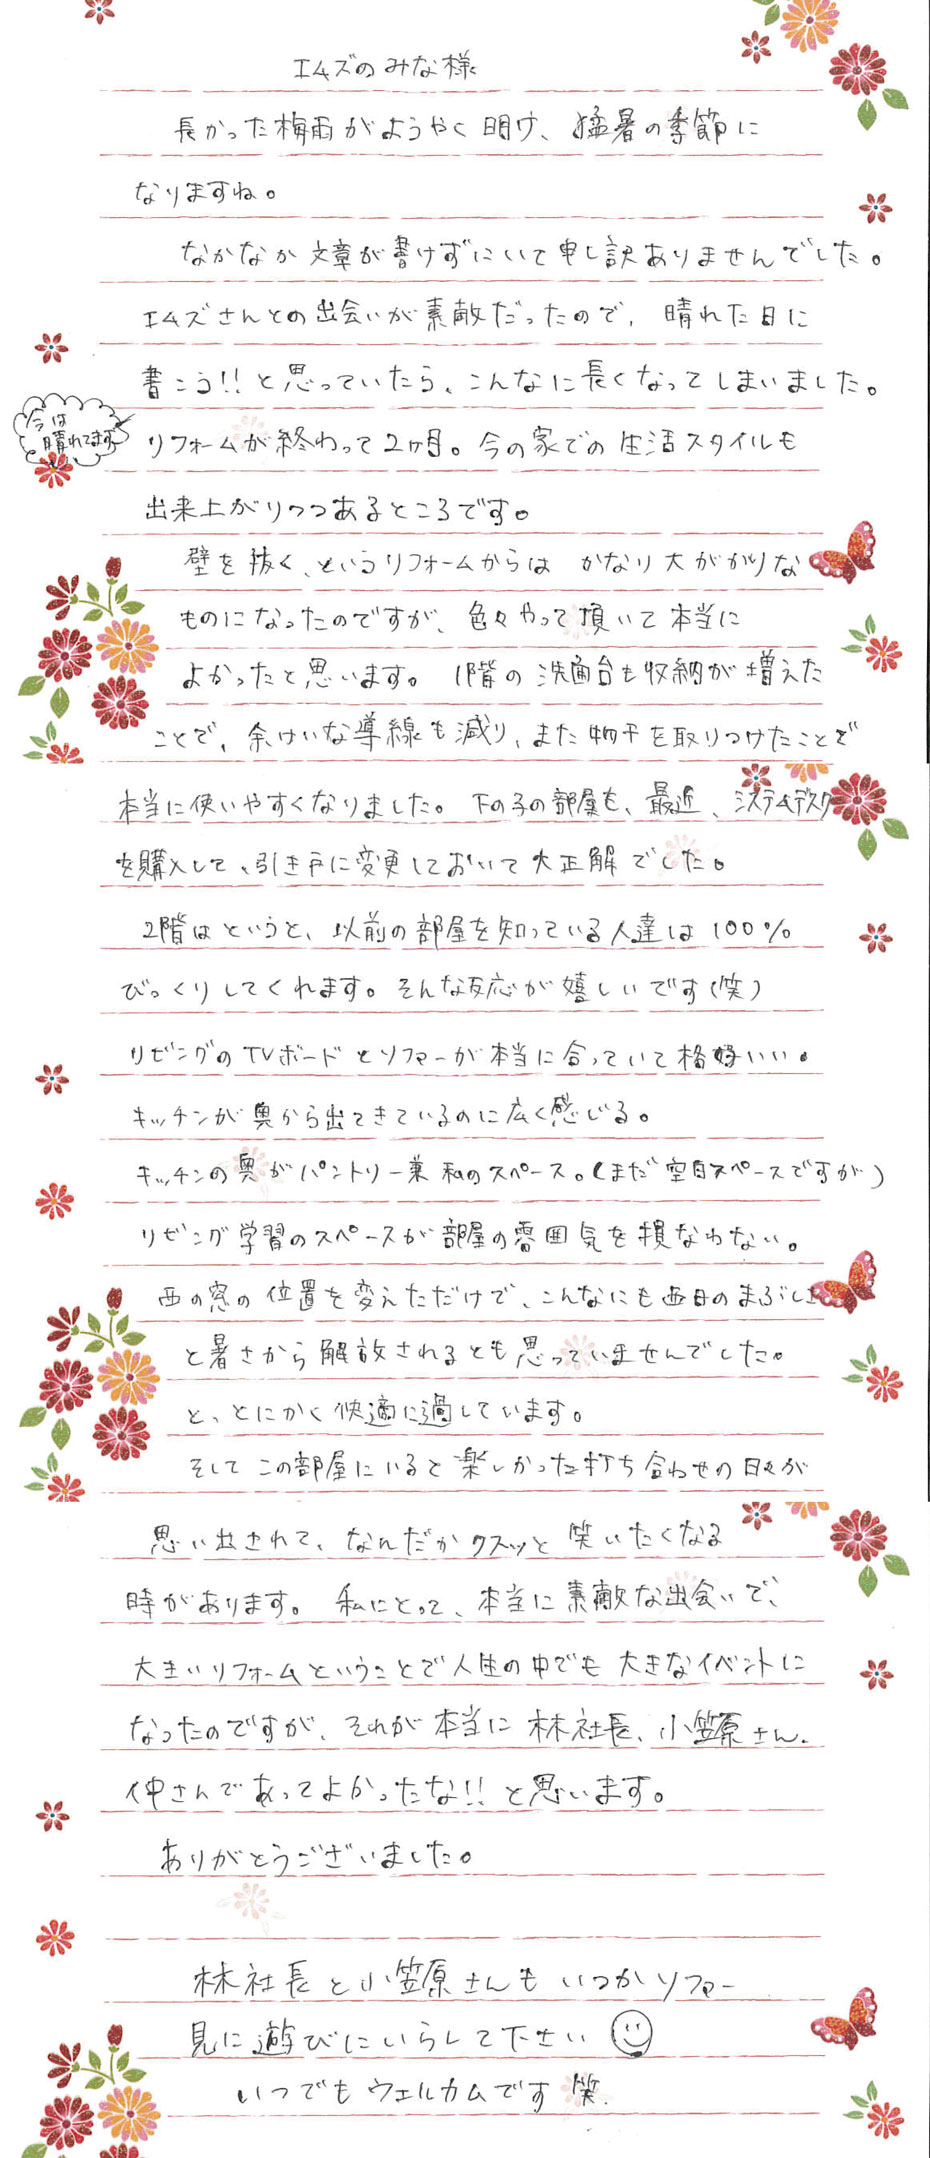 エムズのみな様
長かった梅雨がようやく明け、猛暑の季節に
なりますね。
なかなか文章が書けずにいて申し訳ありませんでした。
エムズさんとの出会いが素敵だったので、晴れた日に
書こう!!と思っていたら、こんなに長くなってしまいました。
今は
晴れてます
リフォームが終わって2ヶ月。今の家での生活スタイルも
出来上がりつつあるところです。
壁を抜く、というリフォームからは かなり大がかりな
ものになったのですが、色々やって頂いて本当に
よかったと思います。1階の洗面台も収納が増えた
ことで、余けいな導線も減り、また物干を取りつけたことで
本当に使いやすくなりました。下の子の部屋も、最近、システムデスク
を購入して、引き戸に変更しておいて大正解でした。
2階はというと、以前の部屋を知っている人達は100%
びっくりしてくれます。そんな反応が嬉しいです(笑)
リビングのTVボードとソファーが本当に合っていて格好いい。
キッチンが奥から出てきているのに広く感じる。
キッチンの奥がパントリー兼私のスペース。(まだ空白スペースですが)
リビング学習のスペースが部屋の雰囲気を損なわない。
西の窓の位置を変えただけで、こんなにも西日のまぶしさ
と暑さから解放されるとも思っていませんでした。
と、とにかく快適に過しています。
そしてこの部屋にいると楽しかった打ち合わせの日々が
思い出されて、なんだかクスッと笑いたくなる
時があります。私にとって、本当に素敵な出会いで、
大きいリフォームということで人生の中でも大きなイベントに
なったのですが、それが本当に林社長、小笠原さん、
仲さんであってよかったな!!と思います。
ありがとうございました。
林社長と小笠原さんもいつかソファー
見に遊びにいらして下さい
いつでもウェルカムです 笑.